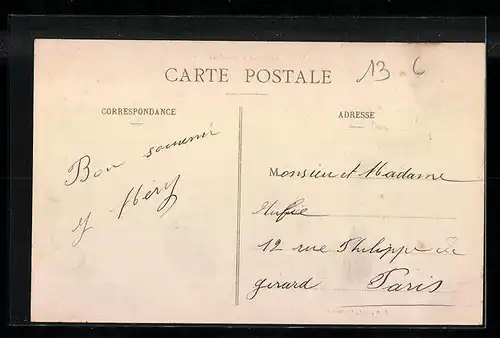 CARTE POSTALE
13 6
CORRESPONDANCE
ADRESSE
Bon souvenir
Monsieur et Madame
12 rue Philippe de
girard Paris